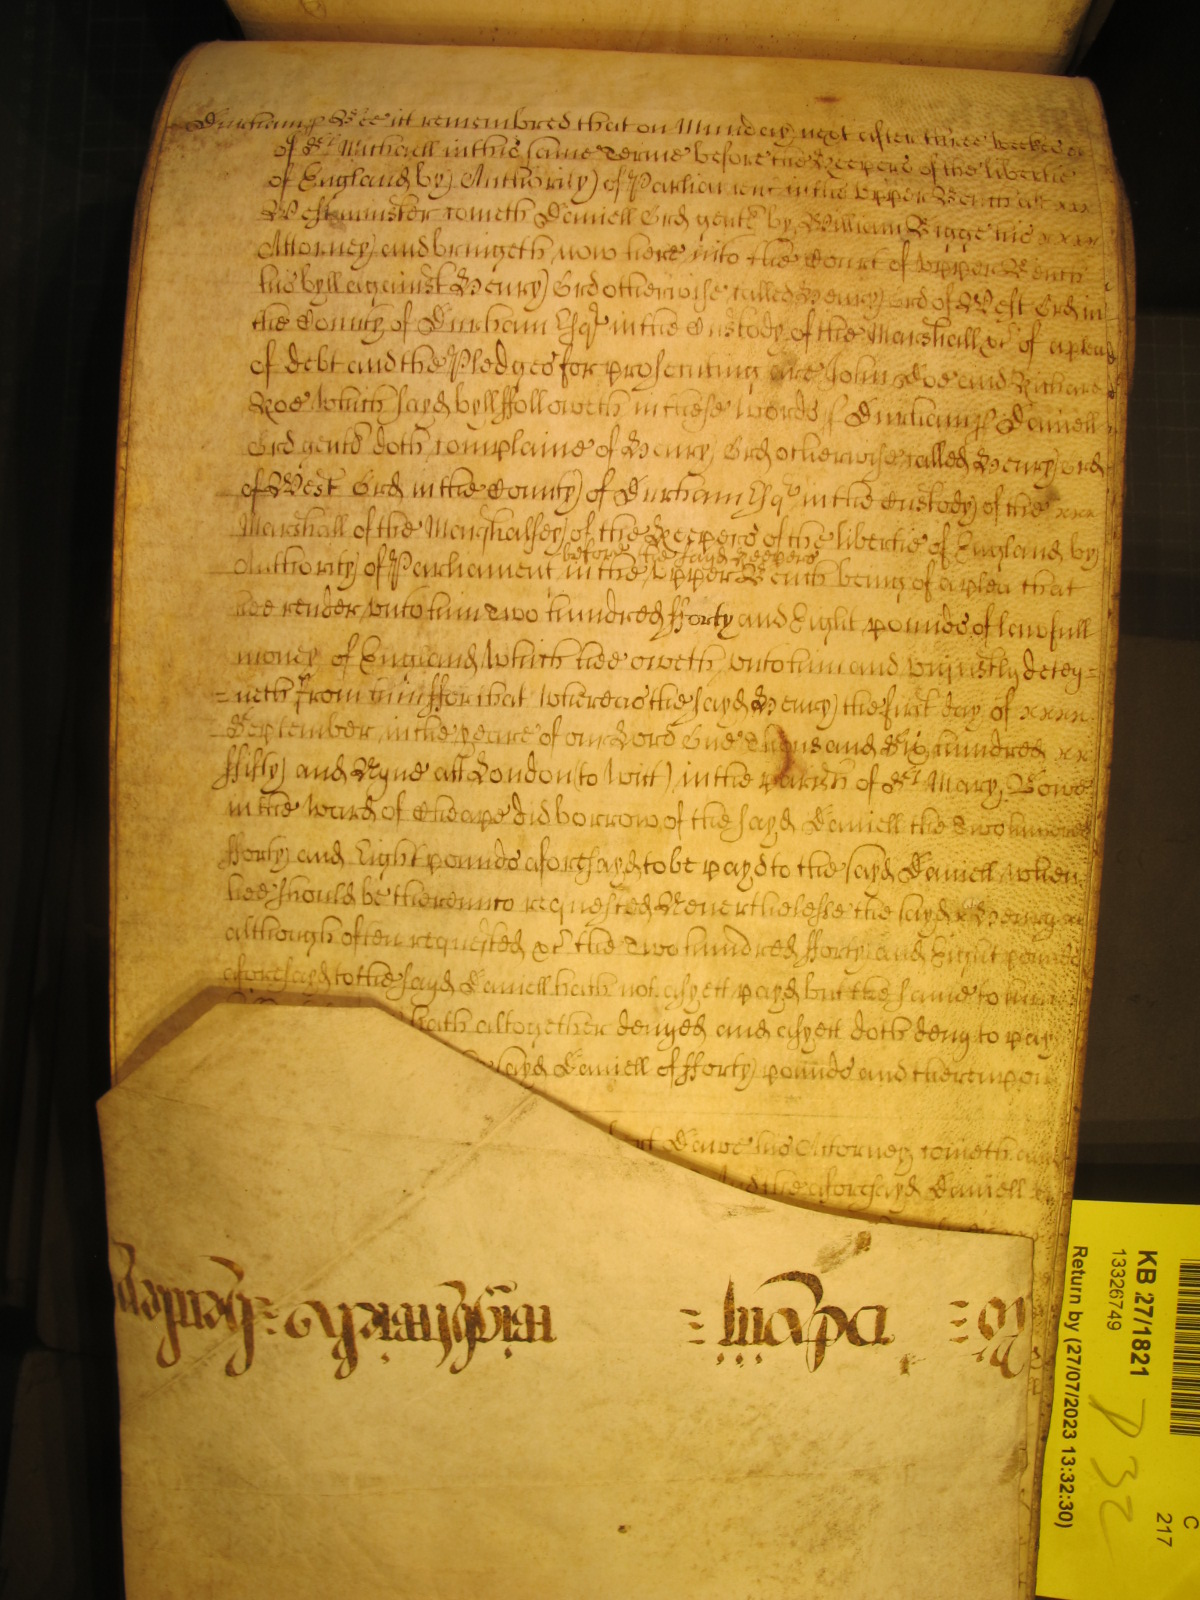 Durham ss Bee itt remembred that on Munday next after three weekes of
of St Michaell in this same Terme before the Keepers of the libertie
of England by Authority of Parliament in the Upper Bench att xxx
Westminster cometh Daniell Ord gentl by William Bigge his xxxx
Attorney and bringeth now here into the Court of Upper Bench
his byll against Henry Ord otherwise called Henry Ord of West Ord in
the County of Durham Esqr in the Custody of the Marshall &c of a plea
of debt and the Pledges for prosecuting are John Doe and Richard
Roe which sayd byll ffolloweth in these words ss Durham ss Daniell
Ord gentl doth complaine of Henry Ord otherwise called Henry Ord
of West Ord in the County of Durham Esqr in the Custody of the xxx
Marshall of the Marshalsey of the Keepers of the libertie of England by
before the sayd Keepers
Authority of Parliament in the Upper Bench being of a plea that
hee render unto him Two hundred fforty and Eight pounds of lawfull
money of England which hee oweth unto him and uniustly detey=
=neth from him ffor that whereas the sayd Henry the first day of xxxx
September in the yeare of our Lord One Thousand Six hundred xx
ffifty and Nyne att London (to witt) in the parish of St Mary Bowe
in the ward of Cheape did borrow of the sayd Daniell the Two hundred
fforty and Eight pounds aforesayd to be payd to the sayd Daniell when
hee should be thereunto requested Neverthelesse the sayd Henry xx
although often requested &c the Two hundred fforty and Eight pounds
aforesayd to the sayd Daniell hath not as yett payd but the same to him
hath altogether denyed and as yett doth deny to pay
sayd Daniell of fforty pounds and thereupon
Dawe his Attorney cometh and
And the aforesayd Daniell
KB 27/1821
13326749
Return by (27/07/2023 13:32:30)
C
217
P 32